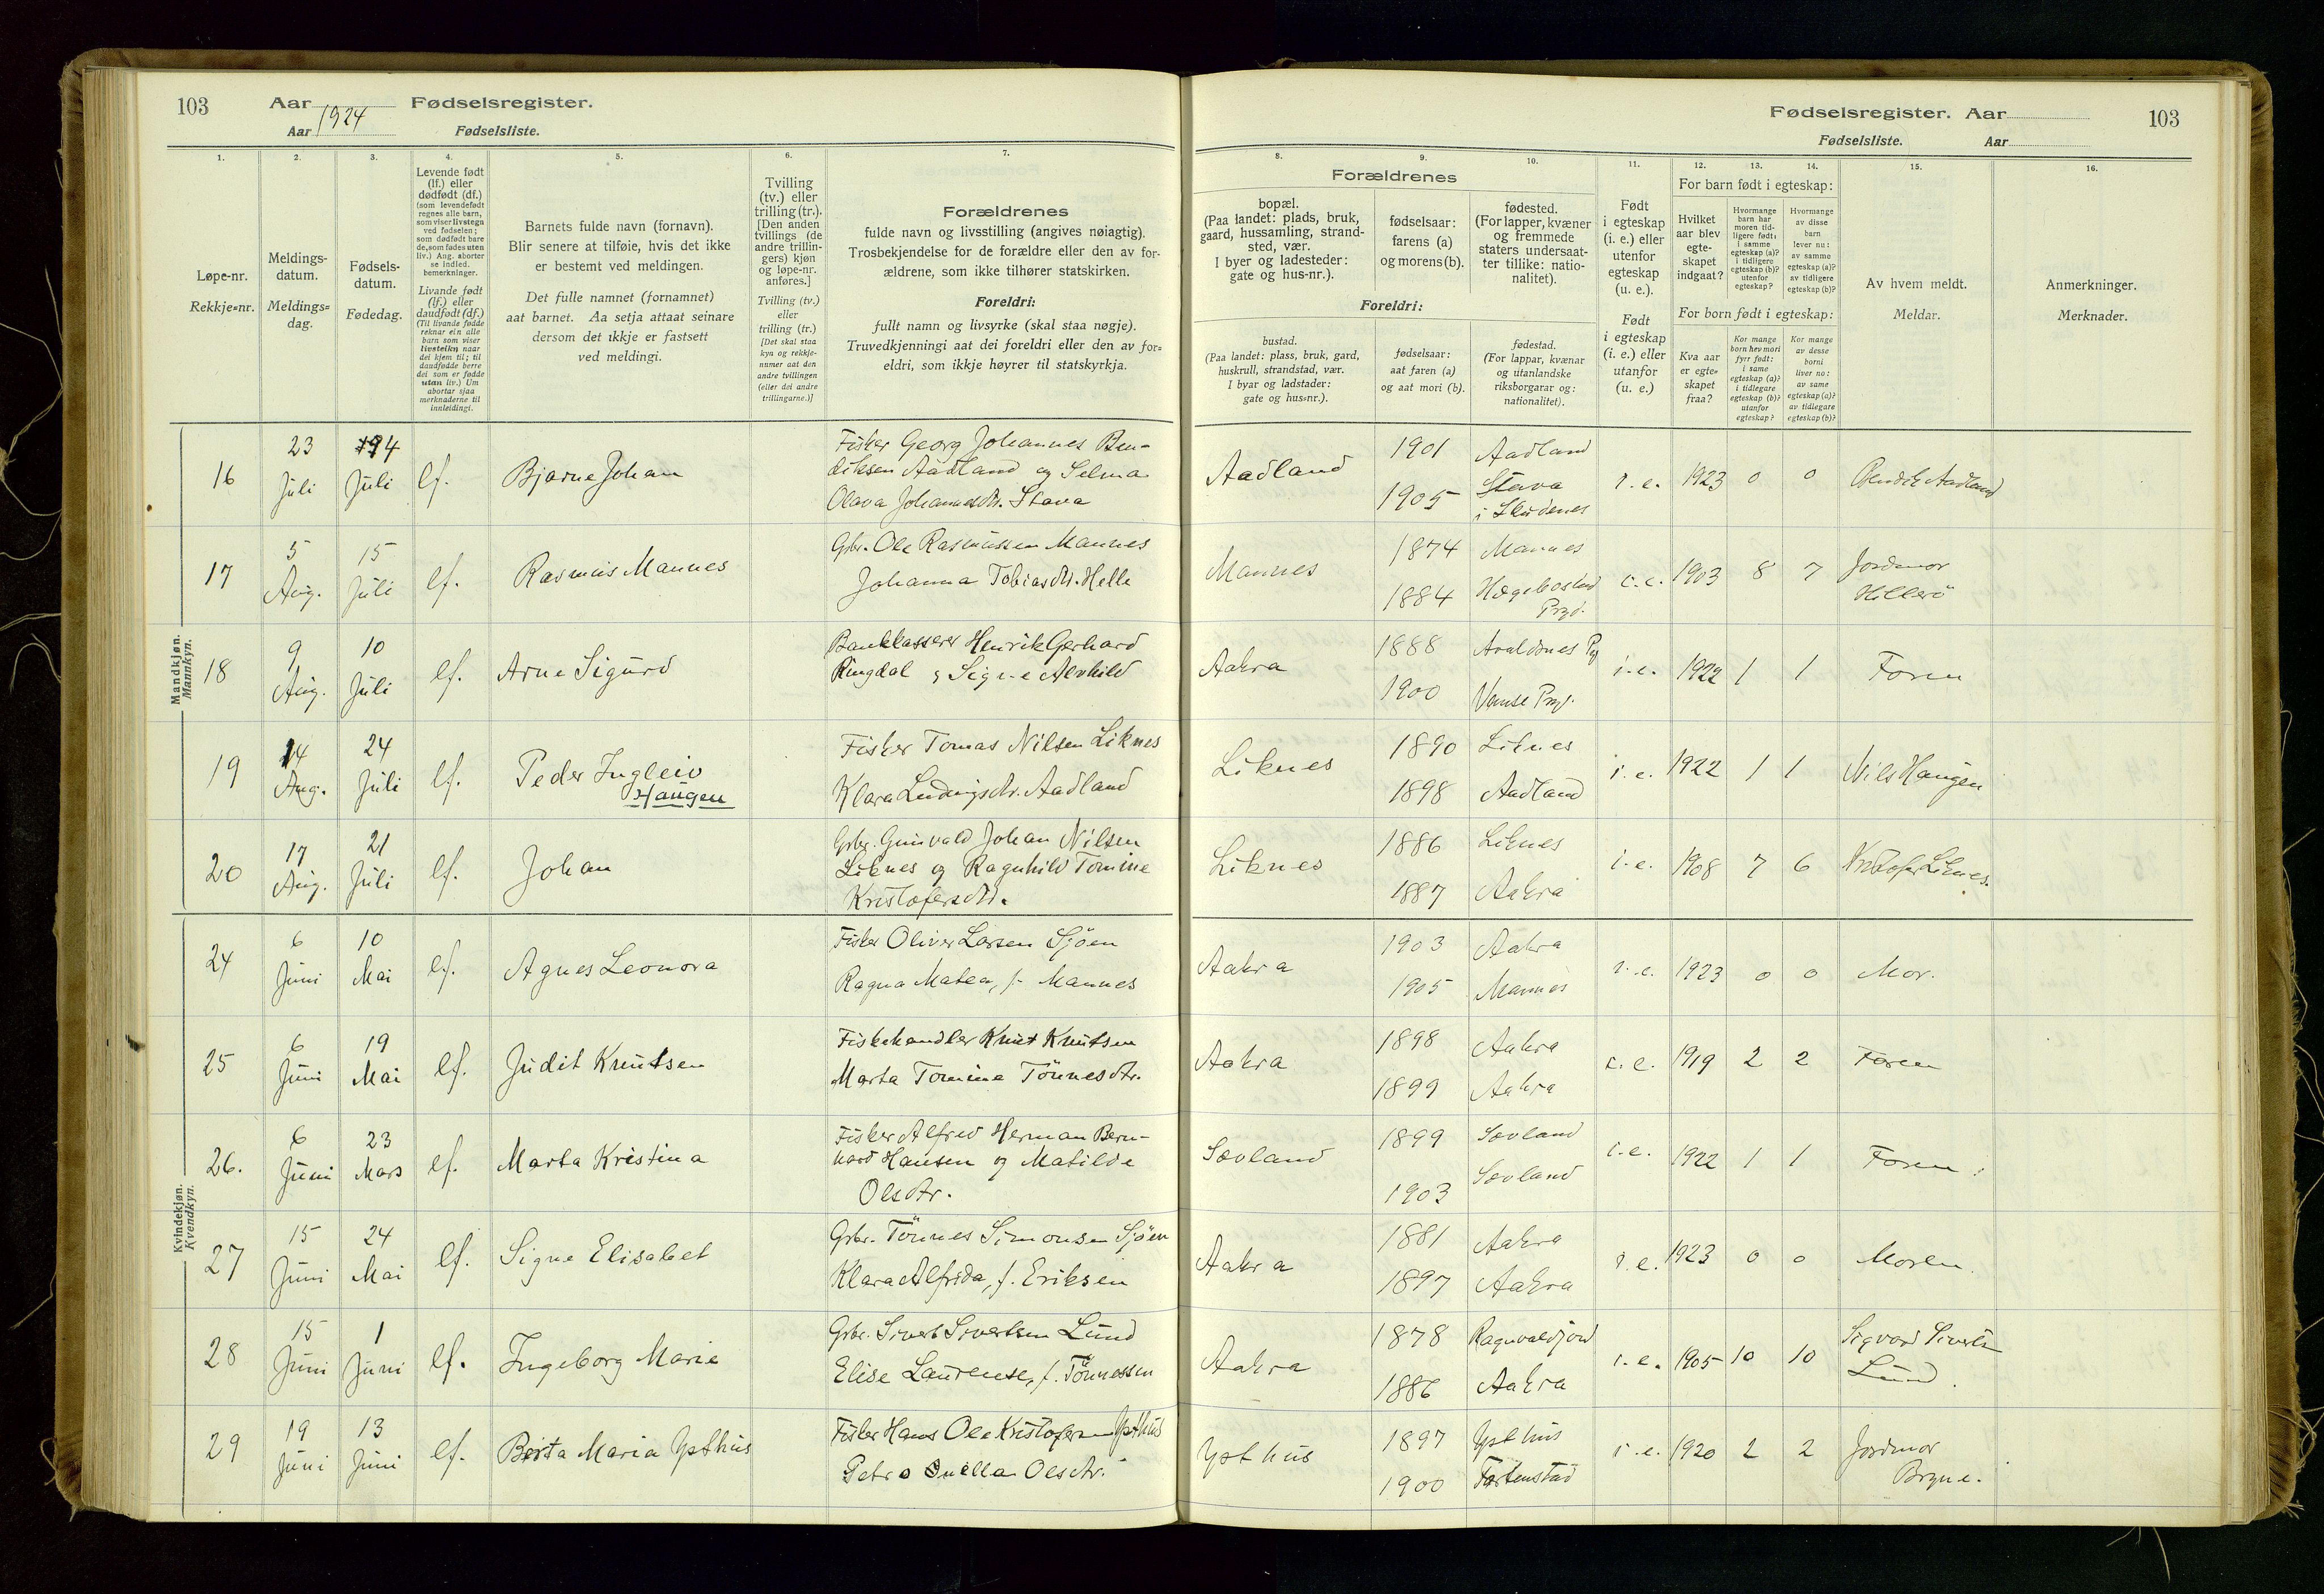 103 Aar 1924 Fødselsregister.
Aar Fødselsliste.
Fødselsregister. Aar 103
Fødselsliste. Aar
1. 2. 3. 4. 5. 6. 7. 8. 9. 10. 11. 12. 13. 14. 15. 16.
Løpe-nr.
Rekkje=nr.
Meldings-
datum.
Meldings=
dag.
Fødsels-
datum.
Fødedag.
Levende født
(lf.) eller
dødfødt (df.)
(som levendefødt
regnes alle barn,
som viser livstegn
ved fødselen;
som dødfødt bare
de, som fødes uten
liv.) Ang. aborter
se indled.
bemerkninger.
Livande født
(lf.) eller
daudfødt (df.)
(Til livande fødde
reknar ein alle
barn som viser
livsteikn naar
dei kjem til; til
daudfødde berre
dei som er fødde
utan liv.) Um
abortar sjaa
merknaderne til
innleidingi.
Barnets fulde navn (fornavn).
Blir senere at tilføie, hvis det ikke
er bestemt ved meldingen.
Det fulle namnet (fornamnet)
aat barnet. Aa setja attaat seinare
dersom det ikkje er fastsett
ved meldingi.
Tvilling
(tv.) eller
trilling (tr.).
[Den anden
tvillings (de
andre trillin-
gers) kjøn
og løpe-nr.
anføres.]
Tvilling (tv.)
eller
trilling (tr.)
[Det skal staa
kyn og rekkje-
nummer aat den
andre tvillingen
(eller dei andre
trillingarne.)]
Forældrenes
fulde navn og livsstilling (angives nøiagtig).
Trosbekjendelse for de forældre eller den av for-
ældrene, som ikke tilhører statskirken.
Foreldri:
fullt namn og livsyrke (skal staa nøgje).
Truvedkjenningi aat dei foreldri eller den av for=
eldri, som ikkje høyrer til statskyrkja.
Forældrenes
bopæl.
(Paa landet: plads, bruk,
gaard, hussamling, strand-
sted, vær.
I byer og ladesteder:
gate og hus-nr.).
fødselsaar:
farens (a)
og morens (b).
fødested.
(For lapper, kvæner
og fremmede
staters undersaat-
ter tillike: natio-
nalitet).
Foreldri:
bustad.
(Paa landet: plass, bruk, gard,
huskrull, strandstad, vær.
I byar og ladstader:
gate og hus=nr.).
fødselsaar:
aat faren (a)
og aat mori (b).
fødestad.
(For lappar, kvænar
og utanlandske
riksborgarar og:
nationalitet).
Født
i egteskap
(i. e.) eller
utenfor
egteskap
(u. e.).
Født
i egteskap
(i. e.) eller
utanfor
(u. e.)
For barn født i egteskap:
Hvilket
aar blev
egte-
skapet
indgaat?
Hvormange
barn har
moren tid-
ligere født:
i samme
egteskap (a)?
i tidligere
egteskap (b)?
utenfor
egteskap?
Hvormange
av disse
barn
lever nu:
av samme
egteskap (a)?
av tidligere
egteskap (b)?
For born født i egteskap:
Kva aar
er egte=
skapet
fraa?
Kor mange
born hev mori
fyrr født:
i same
egteskap (a)?
i tidlegare
egteskap (b)?
utanfor
egteskap?
Kor mange
av desse
borni
liver no:
av same
egteskap (a)?
av tidlegare
egteskap (b)?
Av hvem meldt.
Meldar.
Anmerkninger.
Merknader.
Mandkjøn.
Mannkyn.
16 23 Juli 4 Juli lf. Bjarne Johan
Fisker Georg Johannes Ben-
diksen Aadland og Selma
Olava Johannesdtr. Stava
Aadland 1901 Aadland
1905 Stava
i Skudenes
i. e. 1923 0 0 Bendik Aadland
17 5 Aug. 15 Juli lf. Rasmus Mannes
Gbr. Ole Rasmussen Mannes
Johanna Tobiasdtr. Helle
Mannes 1874 Mannes
1884 Hægebostad
Prgd.
i. e. 1903 8 7 Jordmor
Hillerö
18 9 Aug. 10 Juli lf. Arne Sigurd
Bankkasserer Henrik Gerhard
Ringdal og Signe Alvhild
Aakra 1888 Avaldsnes Pg
1900 Vanse Prgd.
i. e. 1922 1 1 Faren
19 14 Aug. 24 Juli lf. Peder Ingleiv
Haugen
Fisker Tomas Nilsen Liknes
Klara Ludvigsdtr. Aadland
Liknes 1890 Liknes
1898 Aadland
i. e. 1922 1 1 Nils Haugen
20 17 Aug. 21 Juli lf. Johan
Gbr. Gunvald Johan Nilsen
Liknes og Ragnhild Tomine
Kristofersdtr.
Liknes 1886 Liknes
1887 Aakra
i. e. 1908 7 6 Kristofer Liknes.
Kvindekjøn.
Kvendkyn.
24 6 Juni 10 Mai lf. Agnes Leonora
Fisker Oliver Larsen Sjøen
Ragna Matea, f. Mannes
Aakra 1903 Aakra
1905 Mannes
i. e. 1923 0 0 Mor.
25 6 Juni 19 Mai lf. Judit Knutsen
Fiskehandler Knut Knutsen
Marta Tomine Tönnesdtr.
Aakra 1898 Aakra
1899 Aakra
i. e. 1919 2 2 Faren
26. 6 Juni 23 Mars lf. Marta Kristina
Fisker Alfred Herman Bern-
hard Hansen og Matilde
Olsdtr.
Sævland 1899 Sævland
1903 Sævland
i. e. 1922 1 1 Faren
27 15 Juni 24 Mai lf. Signe Elisabet
Gbr. Tönnes Simonsen Sjöen
Klara Alfrida, f. Eriksen
Aakra 1881 Aakra
1897 Aakra
i. e. 1923 0 0 Moren.
28 15 Juni 1 Juni lf. Ingeborg Marie
Gbr. Sivert Sivertsen Lund
Elise Laurense, f. Tönnessen
Aakra 1878 Ragnvaldjord
1886 Aakra
i. e. 1905 10 10 Sigvard Sivertsen
Lund.
29 19 Juni 13 Juni lf. Berta Maria Ypsthus
Fisker Hans Ole Kristofersen Ypsthus
Petra Olsdtr.
Ypsthus 1897 Ypsthus
1900
i. e. 1920 2 2 Jordmor
Bryne.